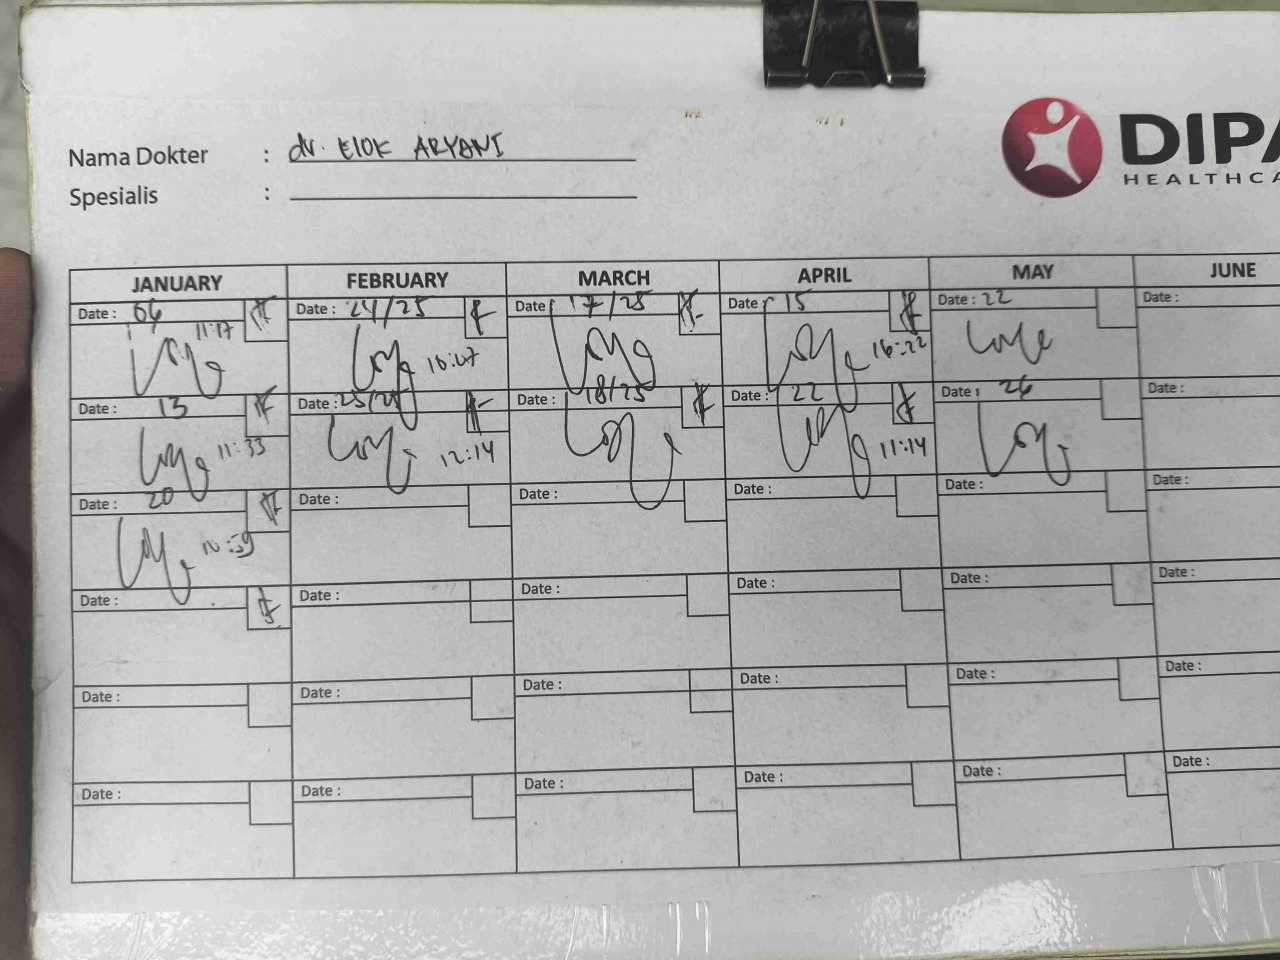 Nama Dokter : dr. Elok ARYANI
Spesialis :
DIPA
HEALTHCA
JANUARY FEBRUARY MARCH APRIL MAY JUNE
Date : 06 Date : 24/25 Date : 17/25 Date : 15 Date : 22 Date :
11:17 16:22
Date : 13 Date : 25/25 Date : 18/25 Date : 22 Date : 26 Date :
11:33 12:14 11:14
Date : 20 Date : Date : Date : Date : Date :
Date : Date : Date : Date : Date : Date :
Date : Date : Date : Date : Date : Date :
Date : Date : Date : Date : Date : Date :